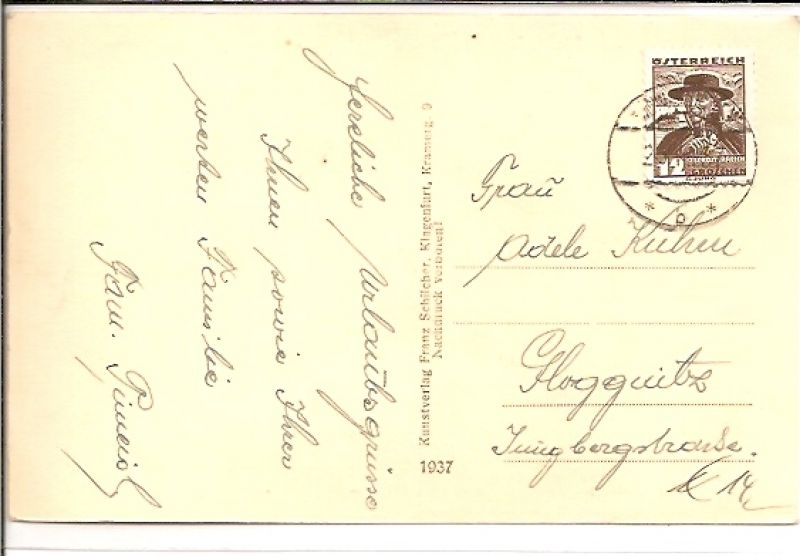 Herzliche Urlaubsgrüsse
Ihnen sowie Ihrer
werten Familie
Fam.
Kunstverlag Franz Schilcher, Klagenfurt, Kramerg. 9
Nachdruck verboten!
1937
ÖSTERREICH
12
GROSCHEN
* b *
Frau
Adele Kuhm
Gloggnitz
Jungbergstrasse.
14